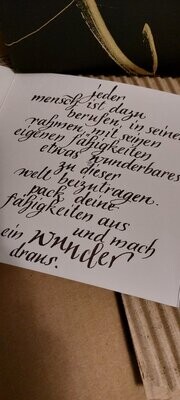 jeder
mensch ist dazu
berufen, in seinem
rahmen, mit seinen
eigenen fähigkeiten
etwas wunderbares
zu dieser
welt beizutragen.
pack deine
fähigkeiten aus
und mach
ein wunder
draus.